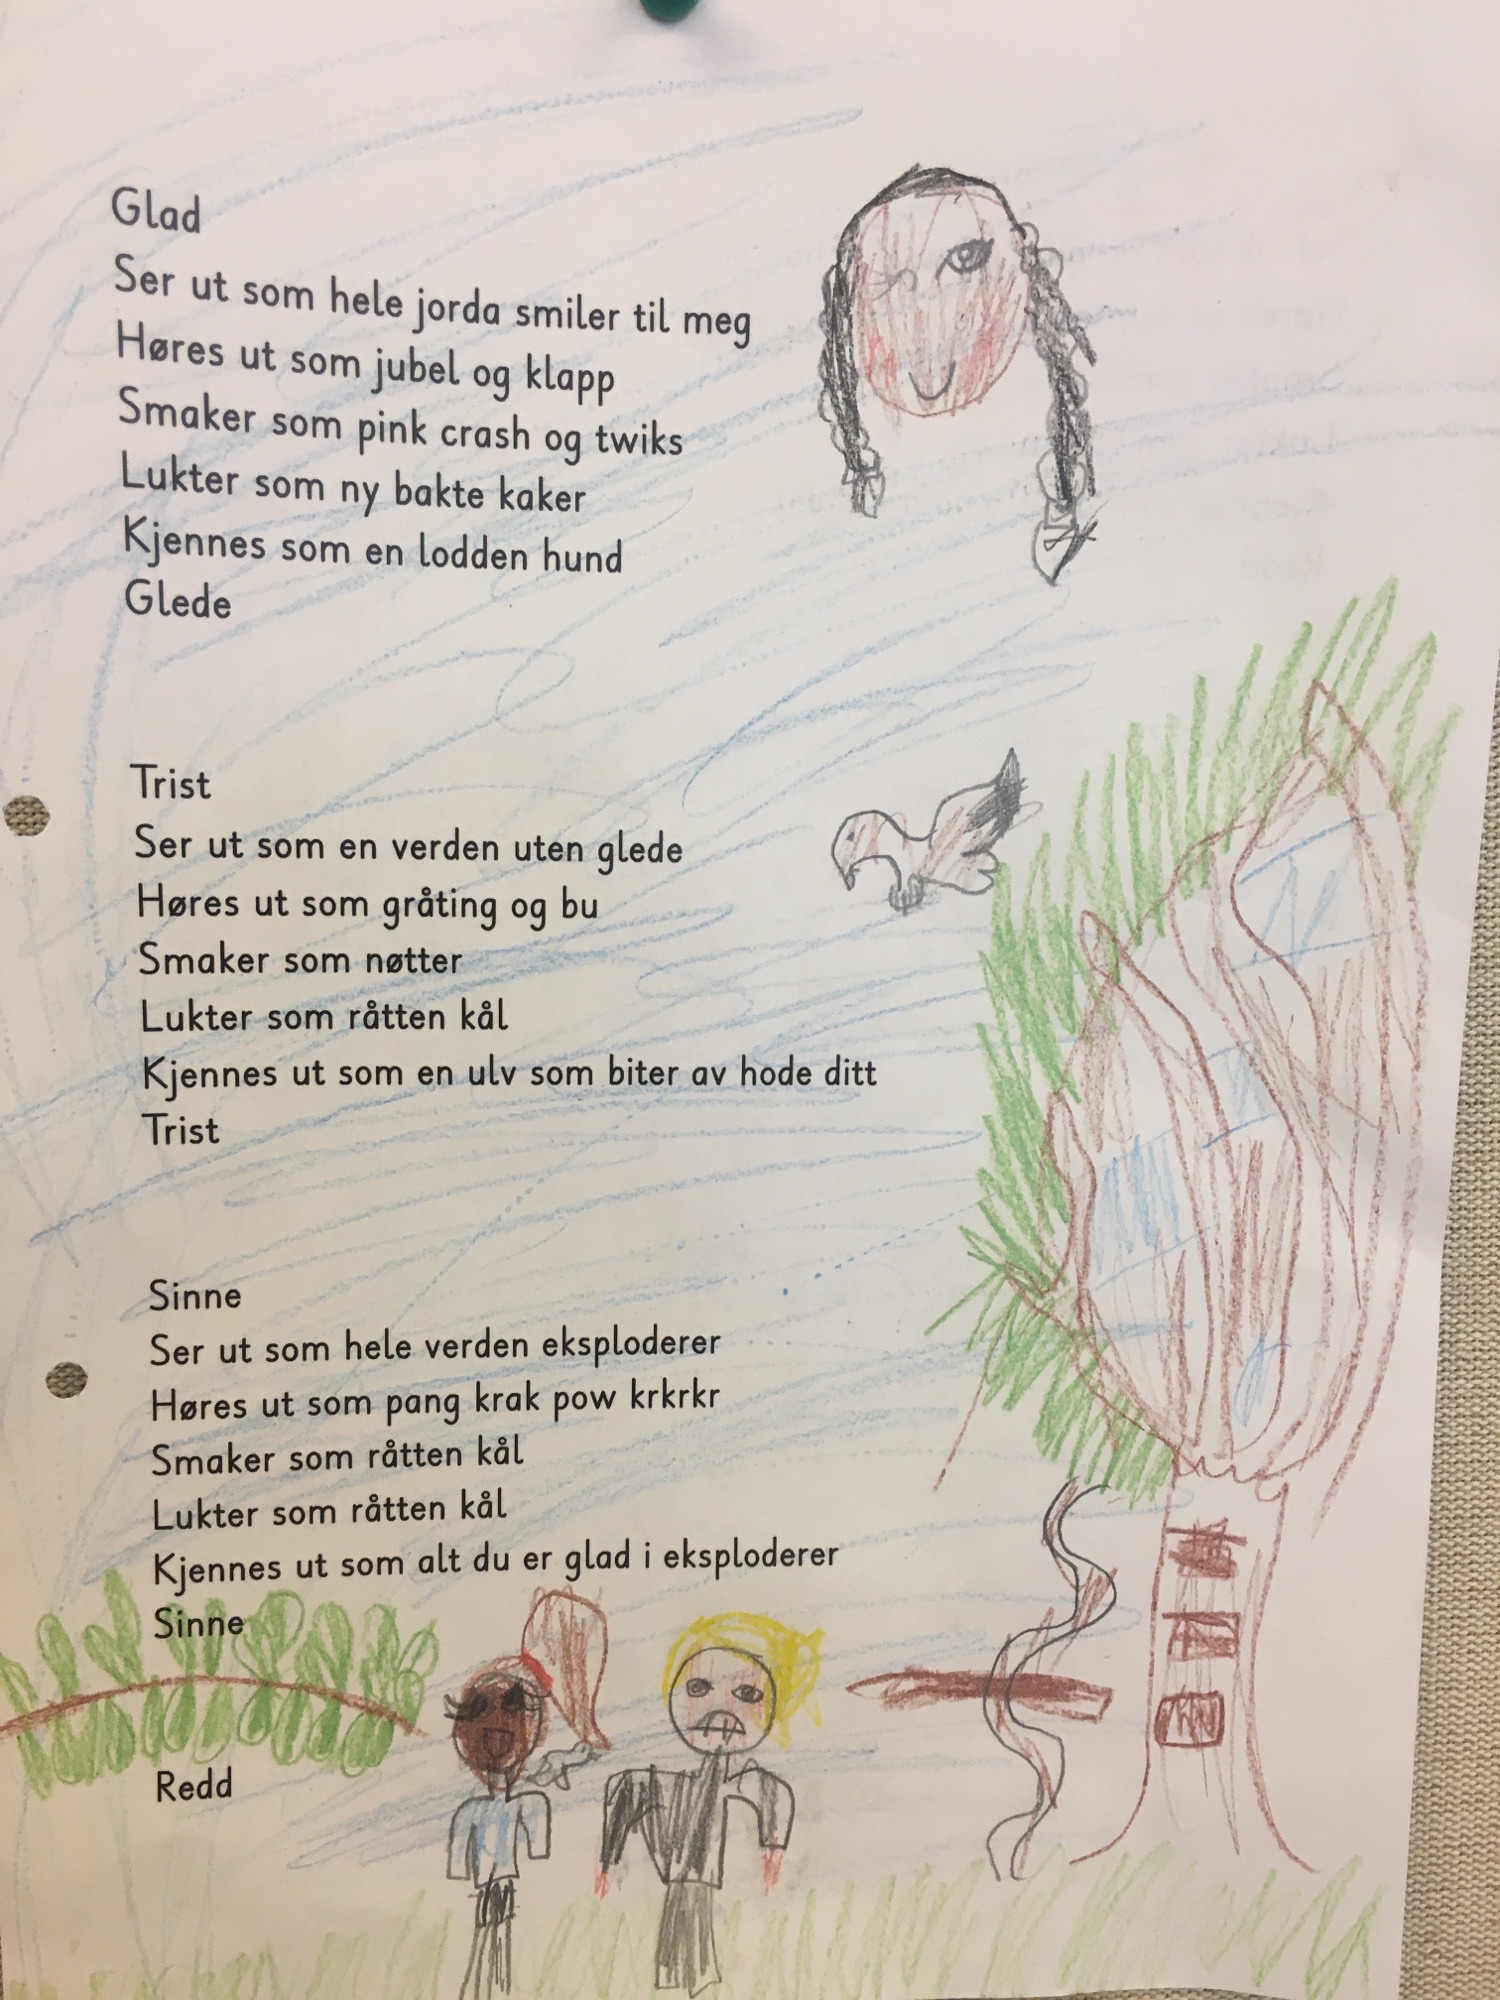 Glad
Ser ut som hele jorda smiler til meg
Høres ut som jubel og klapp
Smaker som pink crash og twiks
Lukter som ny bakte kaker
Kjennes som en lodden hund
Glede
Trist
Ser ut som en verden uten glede
Høres ut som gråting og bu
Smaker som nøtter
Lukter som råtten kål
Kjennes ut som en ulv som biter av hode ditt
Trist
Sinne
Ser ut som hele verden eksploderer
Høres ut som pang krak pow krkrkr
Smaker som råtten kål
Lukter som råtten kål
Kjennes ut som alt du er glad i eksploderer
Sinne
Redd